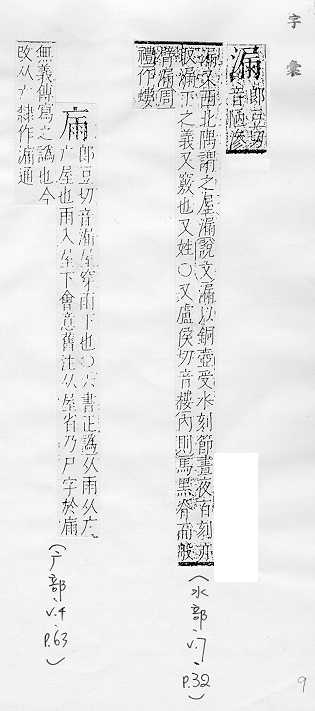 字彙
漏 郎豆切
音陋滲
漏又西北隅謂之屋漏說文漏以銅壺受水刻節晝夜百刻亦
取漏下之義又竅也又姓〇又盧侯切音樓內則馬黑脊而般
臂漏周
禮作螻
(水部、v.7 P.32)
㔷 郎豆切音漏屋穿雨下也〇六書正譌从雨从广
广屋也雨入屋下會意舊注从屋省乃尸字於
無義傳寫之譌也今
改从广隸作漏通
(广部、v.4 P.63)
9